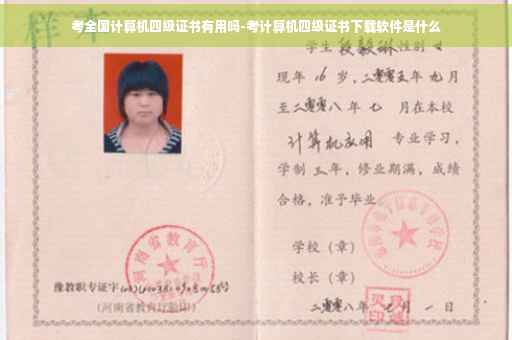 考全国计算机四级证书有用吗-考计算机四级证书下载软件是什么
样本
学生 段毅琳 性别 女
现年 16 岁，二零零五年 九月
至二零零八 年 七 月在本校
计算机应用 专业学习，
学制 三 年，修业期满，成绩
合格，准予毕业
学校（章）
校长（章）
二零零八年 月 一 日
河南省教育厅
豫教职专证字
（河南省教育厅验印）